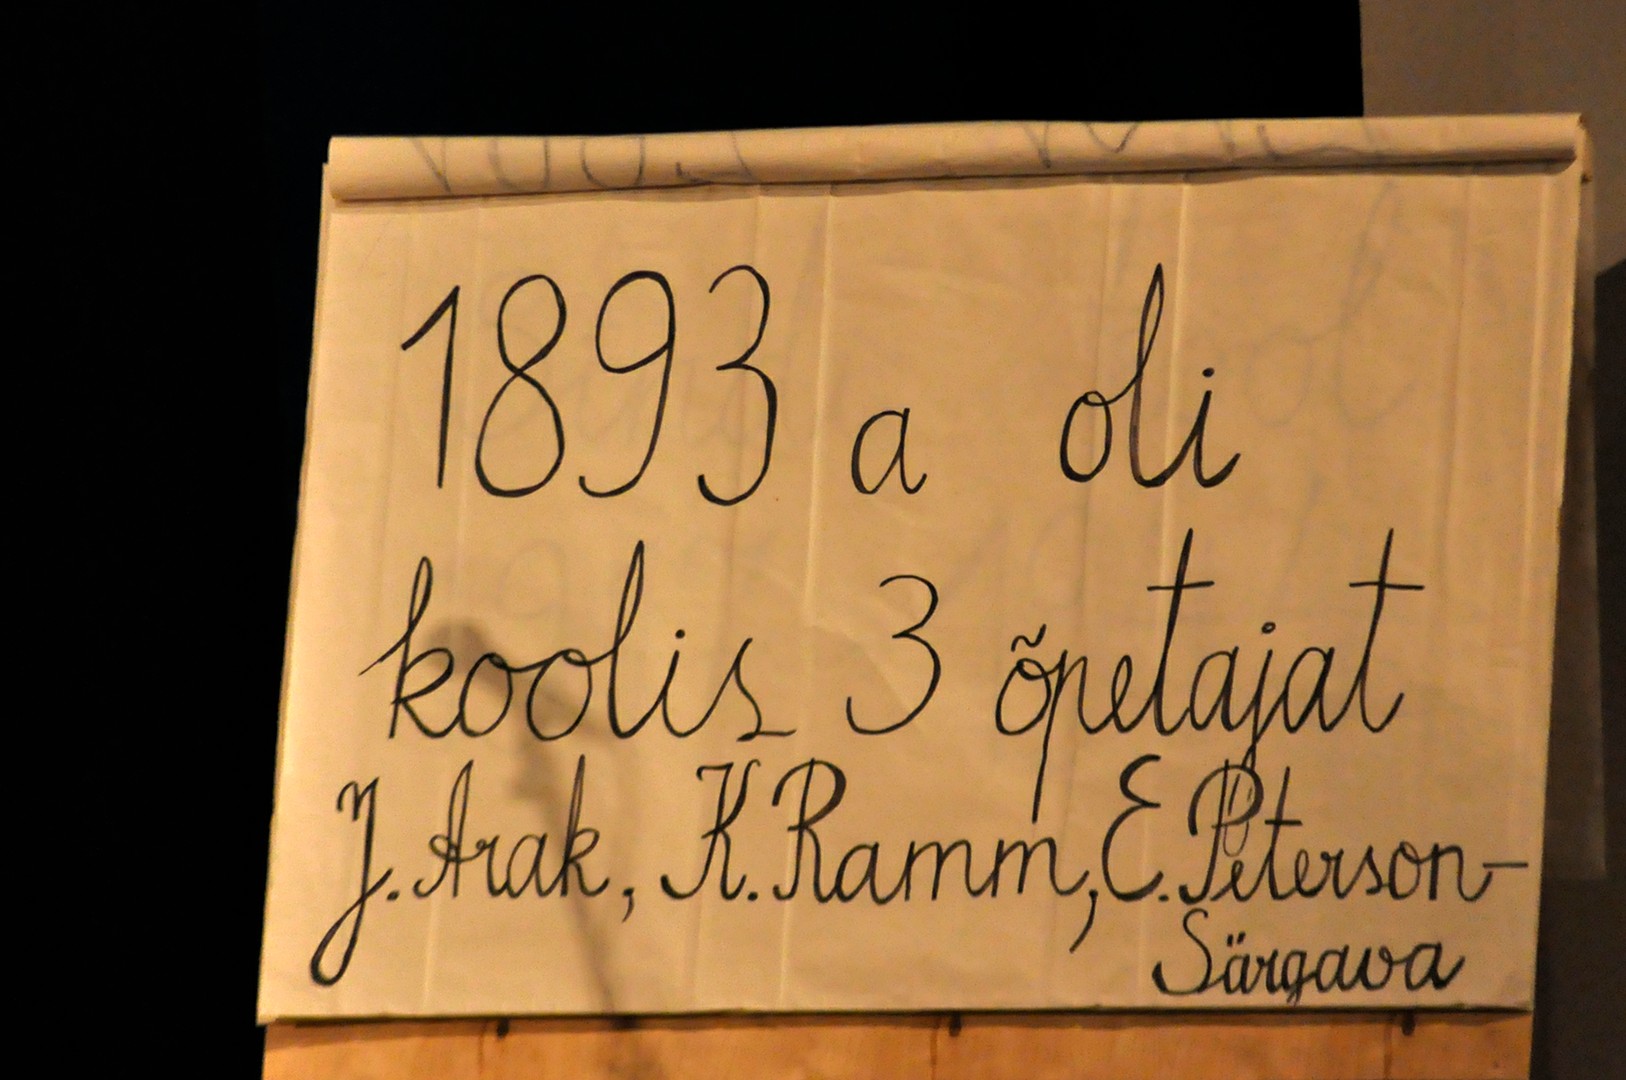 1893 a oli
koolis 3 õpetajat
J. Arak, K. Ramm, E. Peterson-
Särgava